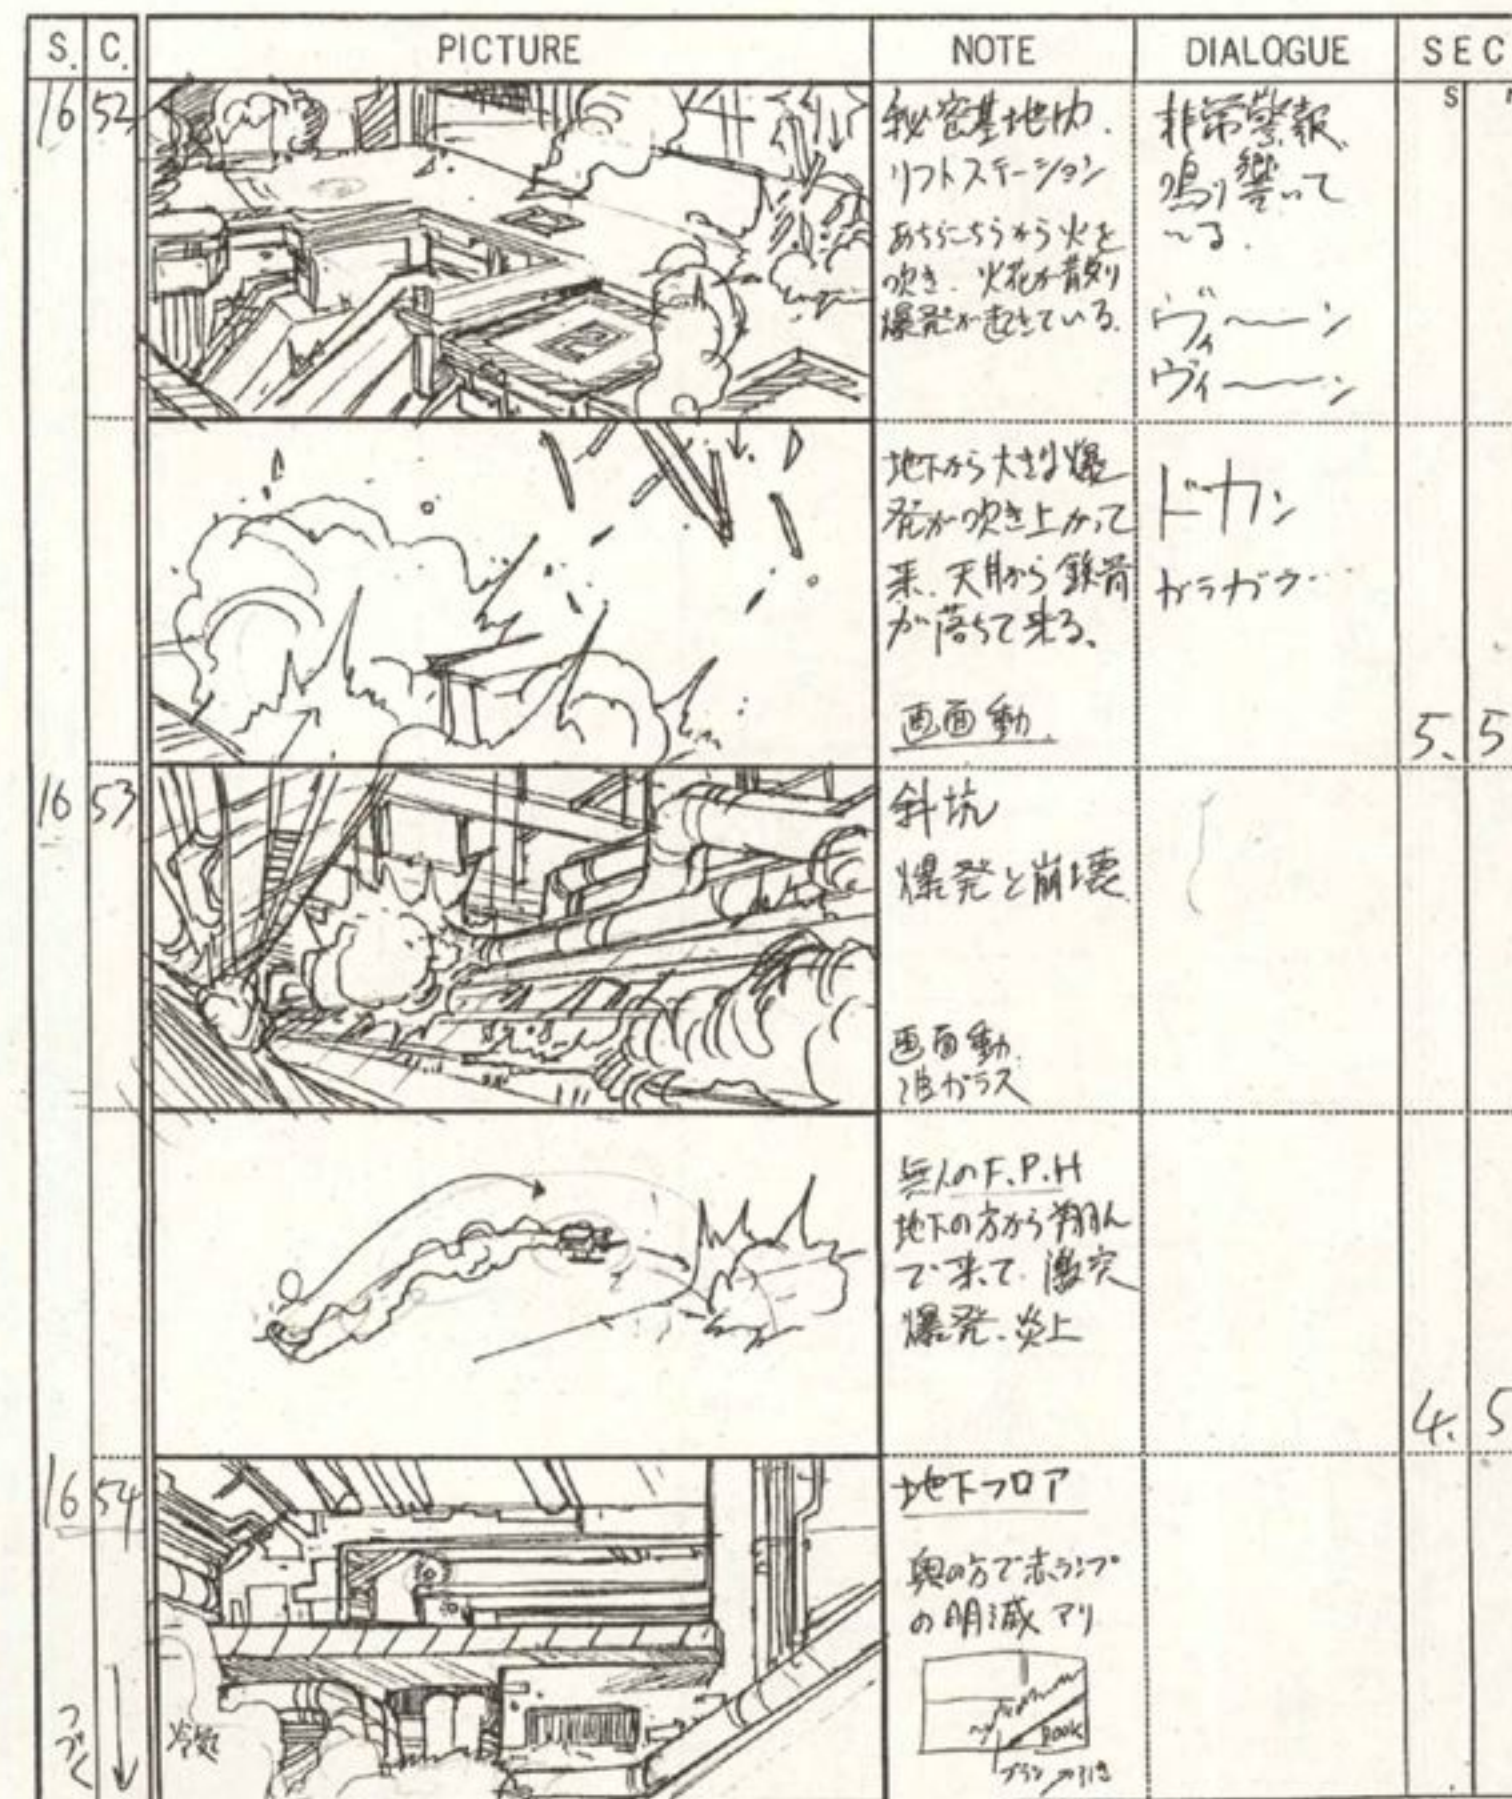 S. C. PICTURE NOTE DIALOGUE SEC
16 52
秘密基地内.
リフトステーション
あちらこちらから火を
吹き.火花が散り
爆発が起きている.
非常警報、
鳴り響いて
〜る.
ヴィ〜〜ン
ヴィ〜〜ン
S
地下から大きな爆
発が吹き上がって
来、天井から鉄骨
が落ちて来る、
画面動.
ドカン
ガラガラ…
5. 5
16 53
斜坑
爆発と崩壊
画面動.
波ガラス
無人のF.P.H
地下の方から翔んで
で来て.激突
爆発、炎上
4. 5
16 54
地下フロア
奥の方で赤ランプ
の明滅アリ
BOOK
つづく